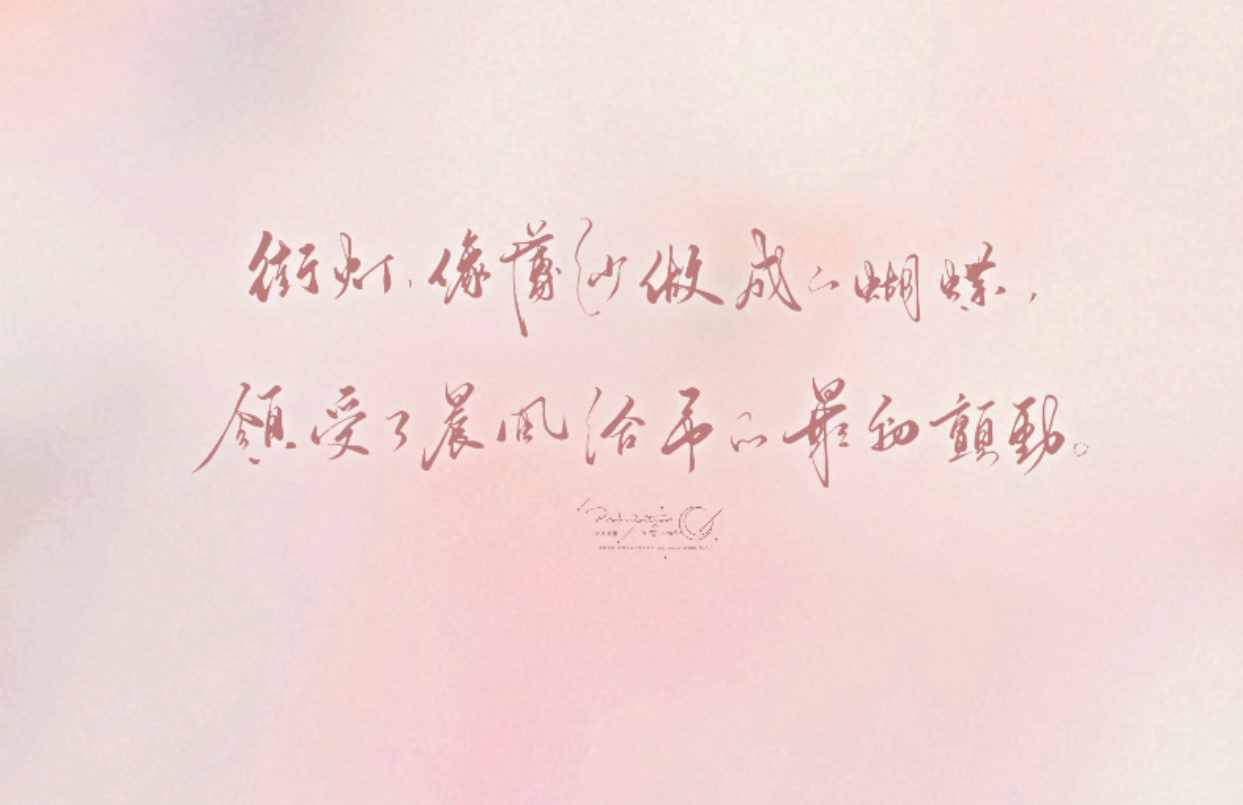 街灯，像薄纱做成的蝴蝶，
領受了晨风给予的最初顫動。